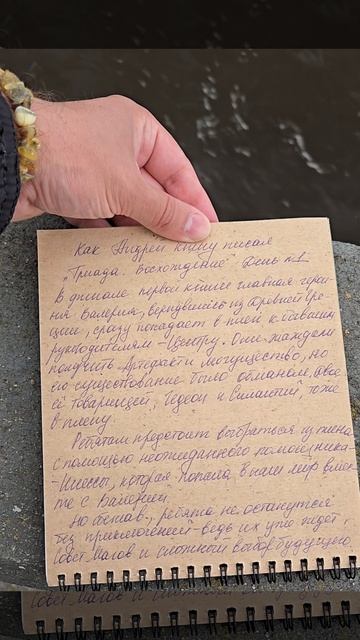 Как Андрей книгу писал
„Триада. Восхождение" День №1
В финале первой книги главная герои-
ня Валерия, вернувшись из древней Гре-
ции, сразу попадает в плен к бывшим
руководителям - Центру. Они жаждали
получить Артефакт и могущество, но
его существование было обманом, двое
её товарищей, Гедеон и Силантий, тоже
в плену.
Ребятам предстоит выбраться из плена
с помощью неожиданного помощника-
-Инессы, которая попала в наш мир вмес-
те с Валерией.
Но сбежав, ребята не останутся
без приключений - ведь их уже ждёт
Совет Магов и сложный выбор будущего.
Совет Магов и